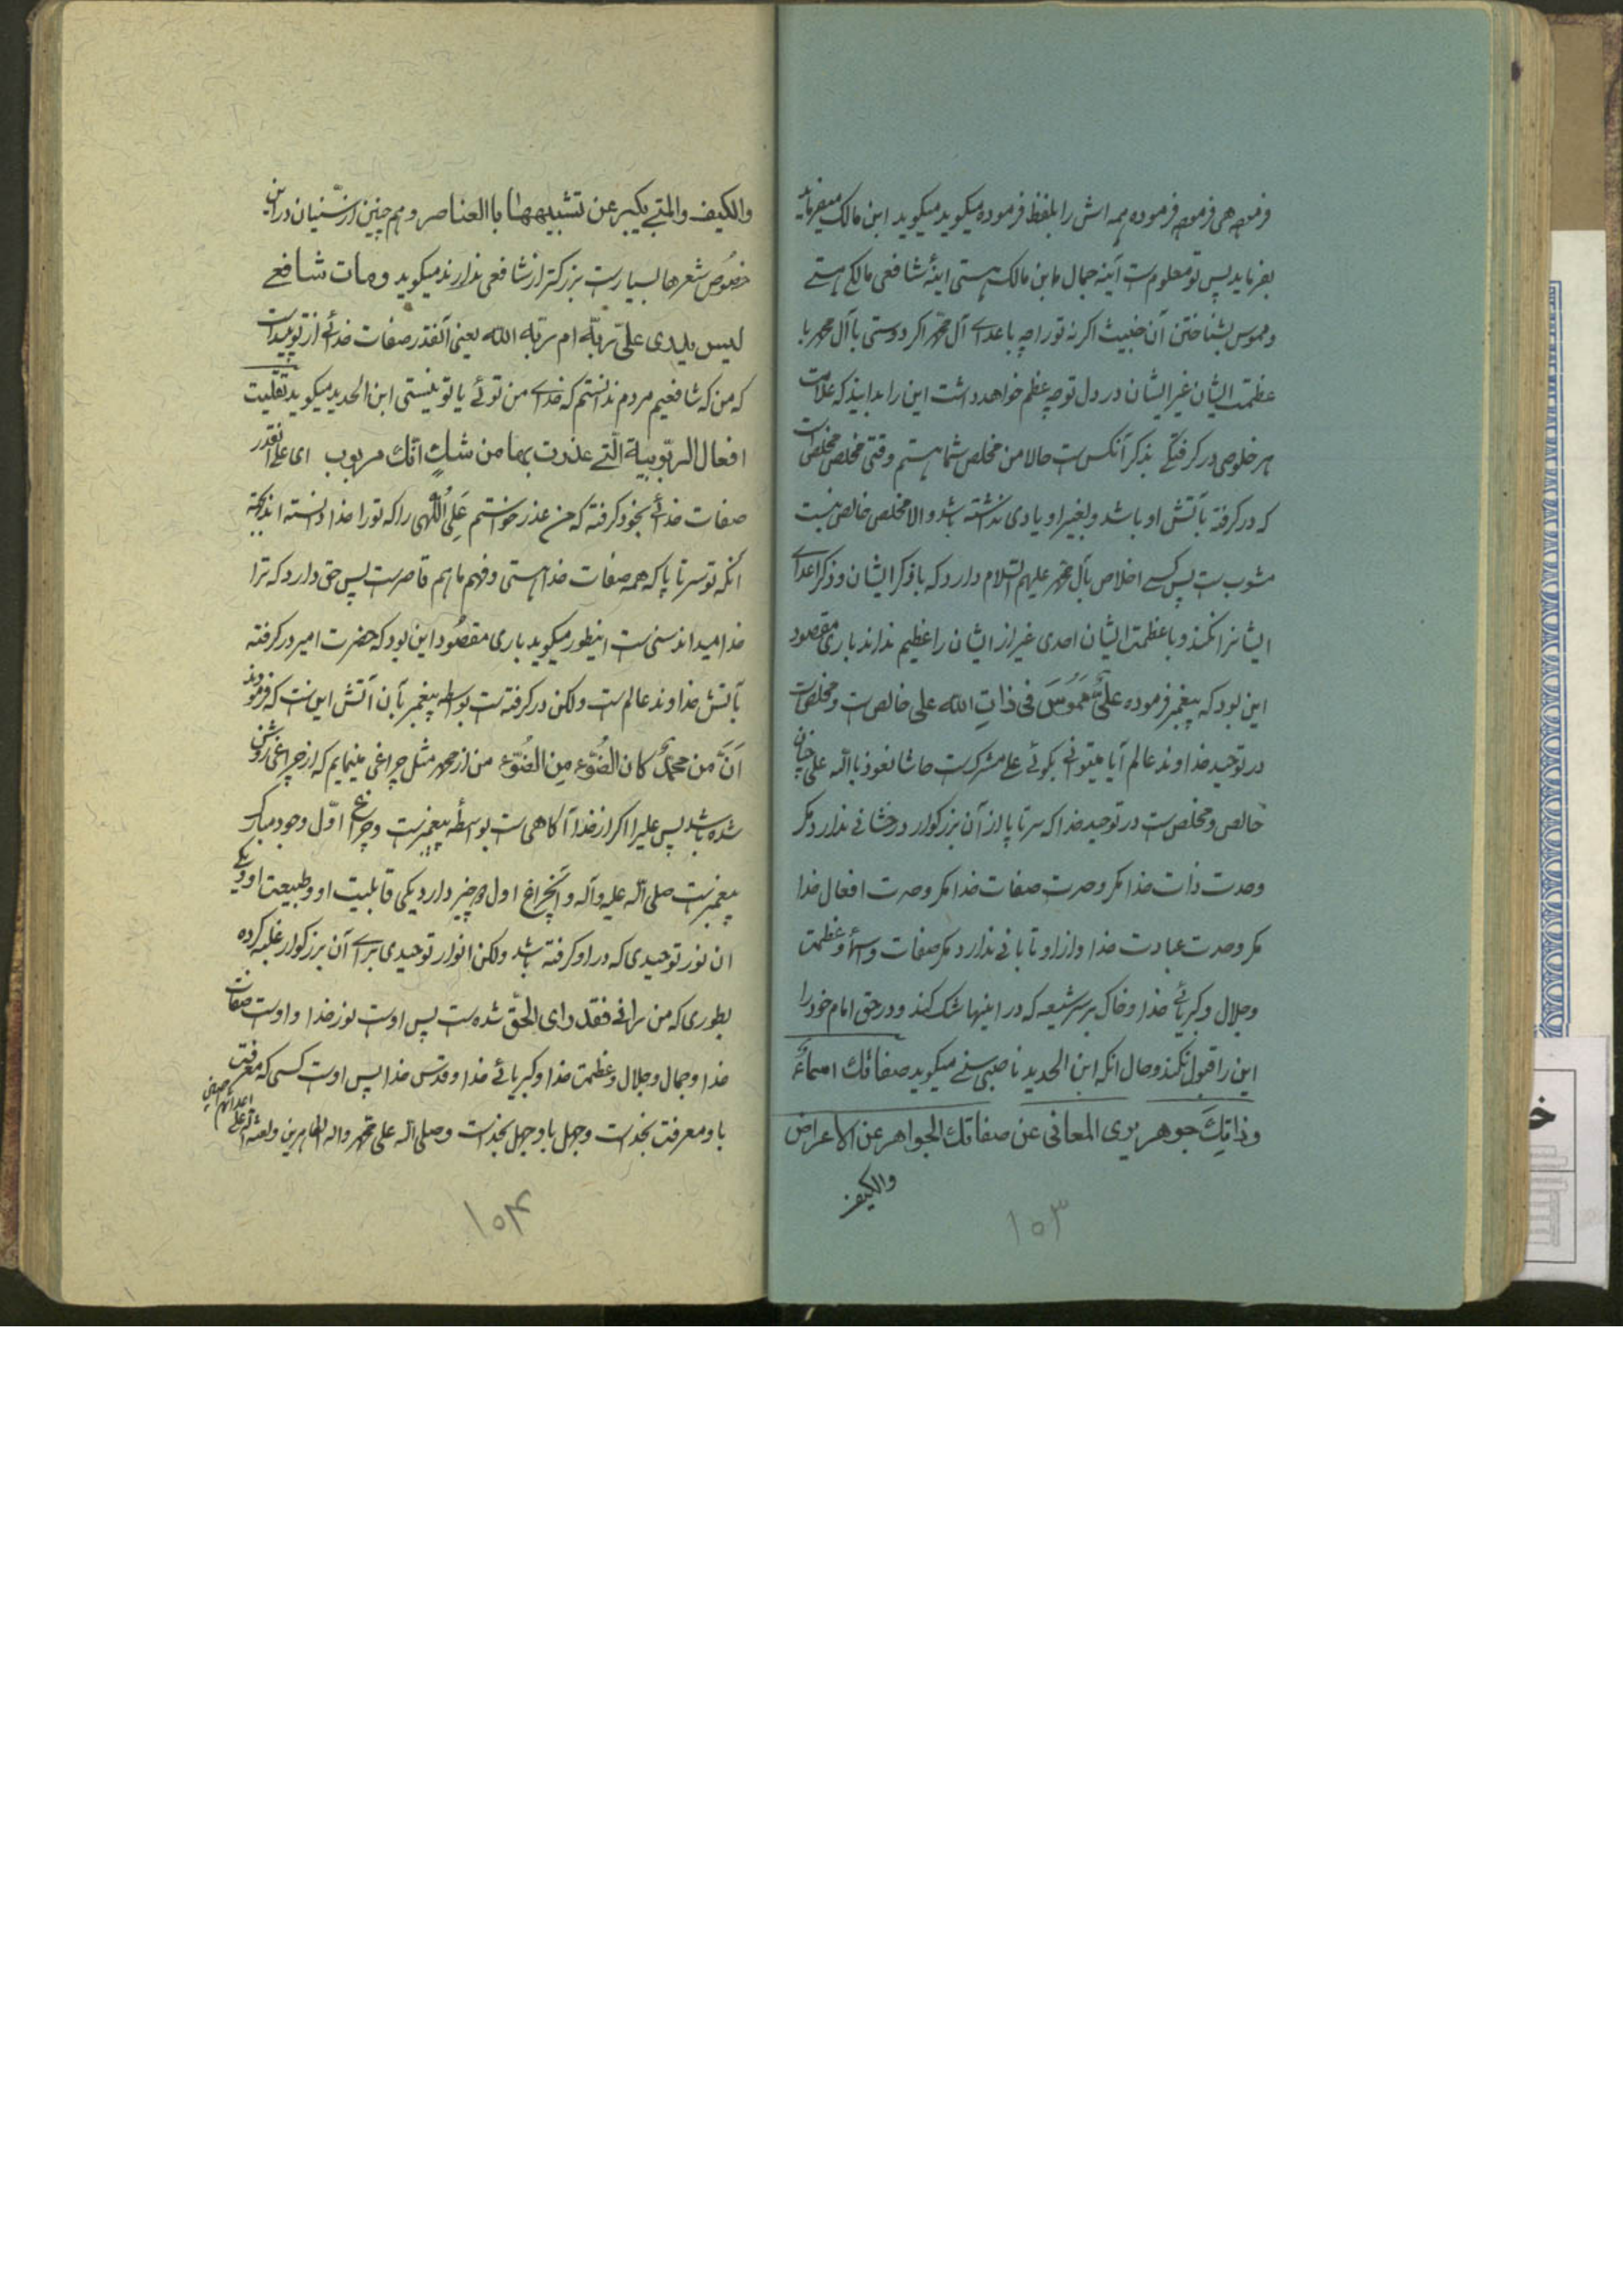 فرموده هی فرموده فرموده همه اش را بلفظ فرموده میکوید میکوید ابن مالک میفرماید
بفرماید پس تو معلومست آینه جمال ابن مالک هستی اینهٔ شافعی مالکی هستے
بشناختن آن خبیث اکر نه تو را چه باعداے آل محمد اکر دوستی با آل محمد با
عظمت ایشان غیر ایشان در دل تو چه عظم خواهد داشت این را بدانید که علامت
هر خلوصی در کرفتکے بذکر آنکس ست حالا من مخلص شما هستم وقتی مخلص مخلص است
که در کرفته بآتش او باشد و بغیر او یادی نداشته باشد والا مخلص خالص نیست
مشوبست پس کسے اخلاص بآل محمد علیهم السلام دارد که با ذکر ایشان و ذکر اعداے
ایشانرا نکند و با عظمت ایشان احدی غیر از ایشان را عظیم نداند باری مقصود
این بود که پیغمبر فرموده علیٌّ مَمْوُسٌ فی ذاتِ الله علی خالص ست و مخلص ست
در توحید خداوند عالم آیا میتوانے بکوئے علے مشرکست حاشا نعوذ بالله علی چنان
خالص و مخلص ست در توحید خدا که سر تا پا از آن بزرکوار درخشانے ندارد مکر
وحدت ذات خدا مکر وحدت صفات خدا مکر وحدت افعال خدا
مکر وحدت عبادت خدا و از او تابانے ندارد مکر صفات و اسماء و عظمت
وجلال و کبریائے خدا و خاک بر سر شیعه که در اینها شک کند و در حق امام خود را
این را قبول نکند و حال انکه ابن الحدید ناصبی سنے میکوید صفاتك اسماءٌ
وذاتك جوهر بری المعانی عن صفاتك الجواهر عن الاعراض
والکیف
۱۰۳
والکیف والمتے یکبر عن تشبیهها باالعناصر و هم چنین از سنّیان در این
خصُوص شعرها بسیارست بزرکتر از شافعی ندارند میکوید ومات شافعے
لیس یدری علیّ ربّه ام ربّه الله یعنی آنقدر صفات خدائے از تو پیداست
که من که شافعیم مردم ندانستم که خداے من توئے یا تو نیستی ابن الحدید میکوید تقیّلت
افعال الربّوبیة الّتے عذرت بهامن شكٍ انّك مربوب ای علے آنقدر
صفات خدائے بخود کرفته که من عذر خواستم عَلِی اُللّهی را که تو را خدا دانسته اند بجهة
آنکه تو سر تا پا که همه صفات خدا هستی و فهم ما هم قاصرست پس حق دارد که ترا
خدا میداند سنی ست اینطور میکوید باری مقصُود این بود که حضرت امیر در کرفته
بآتش خداوند عالم ست ولکن در کرفته ست بواسطه پیغمبر بآن آتش این ست که فرمودند
اَنَا مَن محمدٍ کان الضُوء مِن الضُوّء من از محمد مثل چراغی مینمایم که از چراغی روشن
شده باشد پس علیرا اکر از خدا آکاهی ست بواسطه پیغمبرست و چراغ اوّل وجود مبارک
پیغمبرست صلی الله علیه وآله و آنچراغ اول دو چیز دارد یکی قابلیت او و طبیعت او و یکے
ان نور توحیدی که در او کرفته باشد ولکن انوار توحیدی براے آن بزرکوار غلبه کرده
بطوری که من رانے فقد رای الحقّ شده ست پس اوست نور خدا و اوست صفات
خدا و جمال و جلال و عظمت خدا و کبریائے خدا و قدس خدا پس اوست کسی که معرفت
باو معرفت بخداست و جهل باو جهل بخداست وصلی الله علی محمد واله الطاهرین ولعنة الله علی
اعدائهم اجمعین
۱۰۴